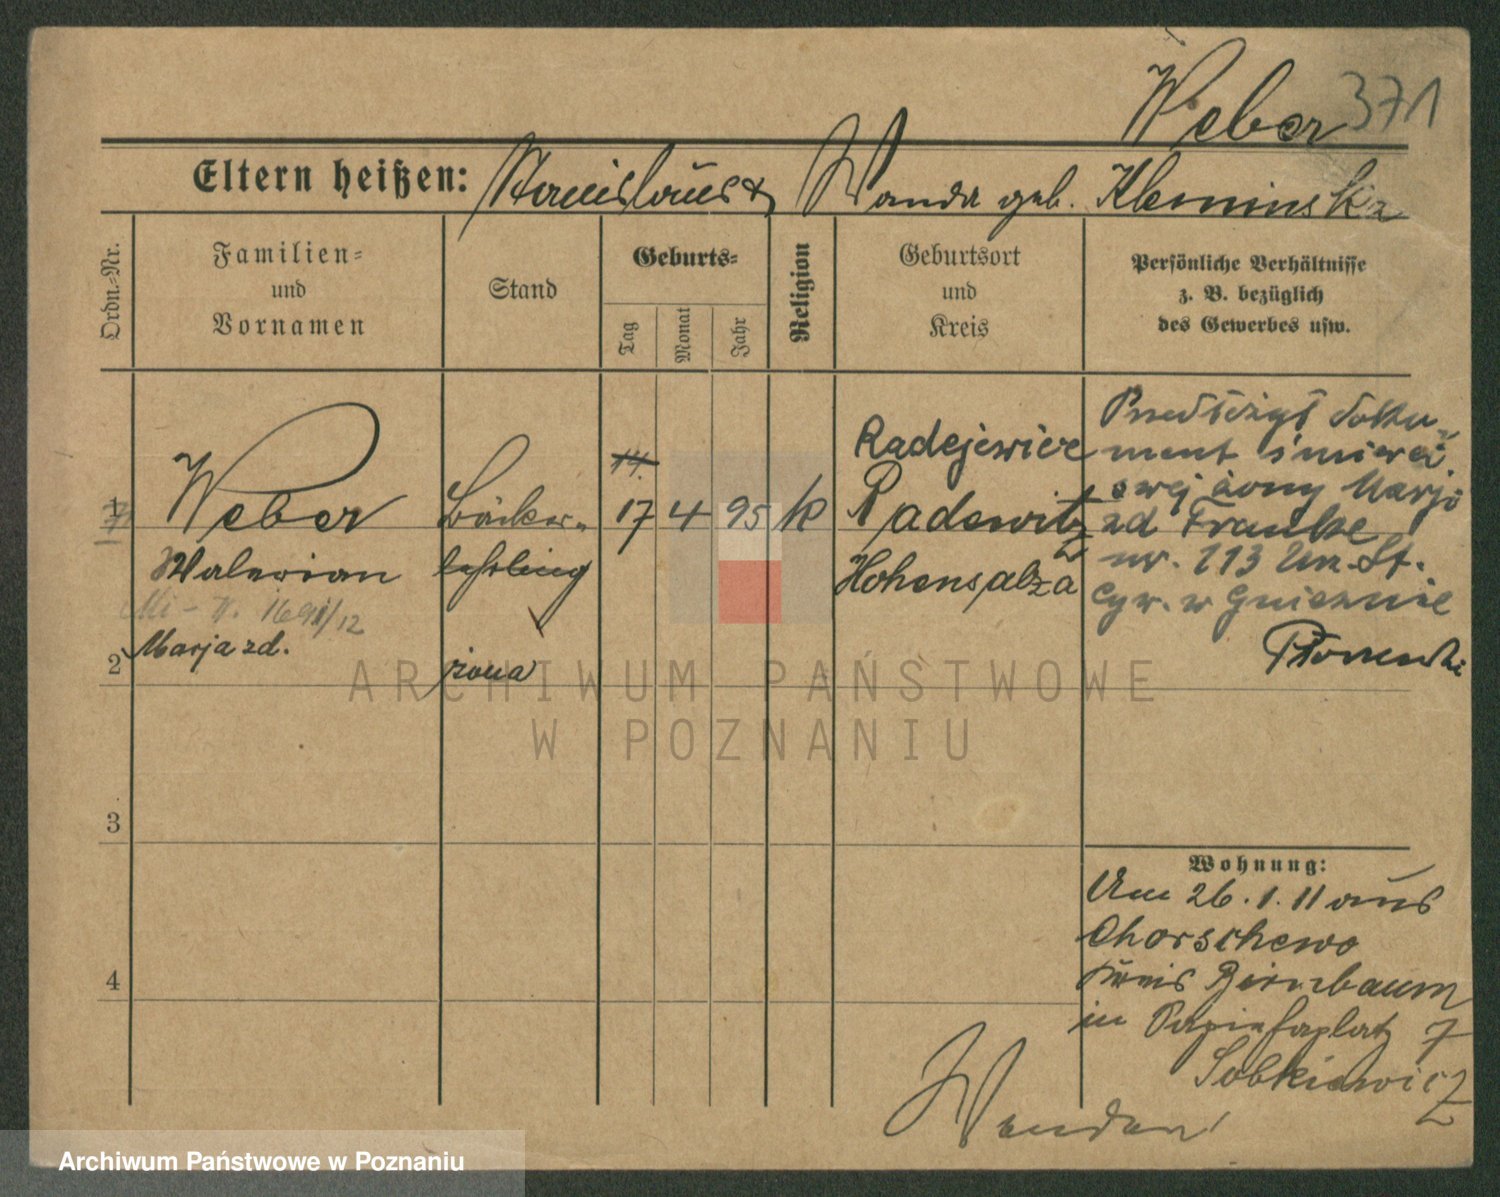 Weber 371
Eltern heißen: Stanislaus & Wanda geb. Kleminska
Ordn.-Nr.
Familien-
und
Vornamen
Stand
Geburts-
Tag
Monat
Jahr
Religion
Geburtsort
und
Kreis
Persönliche Verhältnisse
z. B. bezüglich
des Gewerbes usw.
1
Weber
Walerian
Bäcker-
lehrling
14.
17 4 95 k
Radejewice
Radewitz
Hohensalza
Przedłożył doku-
ment śmierci
swej żony Marji
zd Franke
nr. 113 Urz. St.
Cyw. w Gnieznie
2
Marja zd.
żona
3
4
Wohnung:
Am 26.1.11 aus
Chorschewo
Kreis Birnbaum
in 7
Sobkiewicz
Wenden!
ARCHIWUM PAŃSTWOWE
W POZNANIU
Archiwum Państwowe w Poznaniu